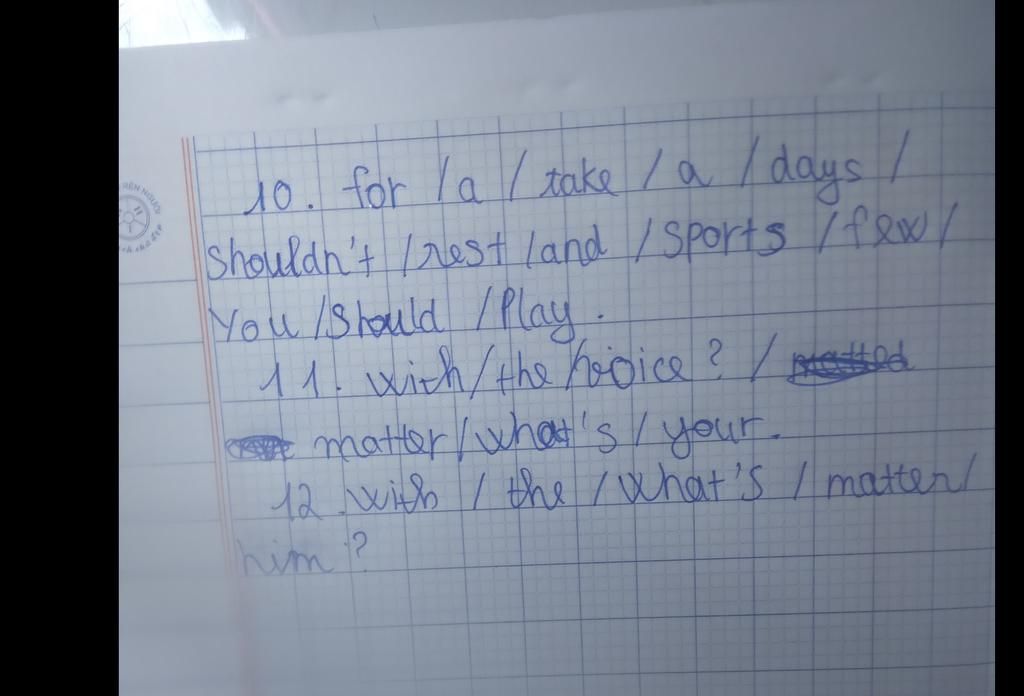 10. for / a / take / a / days /
shouldn't / rest / and / sports / few /
You / should / Play.
11. with / the / voice? /
matter / what's / your.
12. with / the / what's / matter /
him?